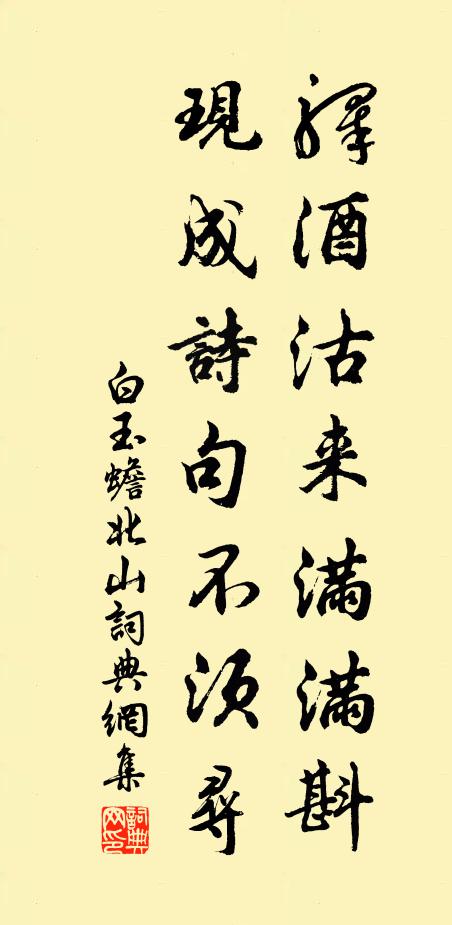 驛酒沽来滿滿斟
現成詩句不須尋
白玉蟾北山詞典網集
詞典
网印